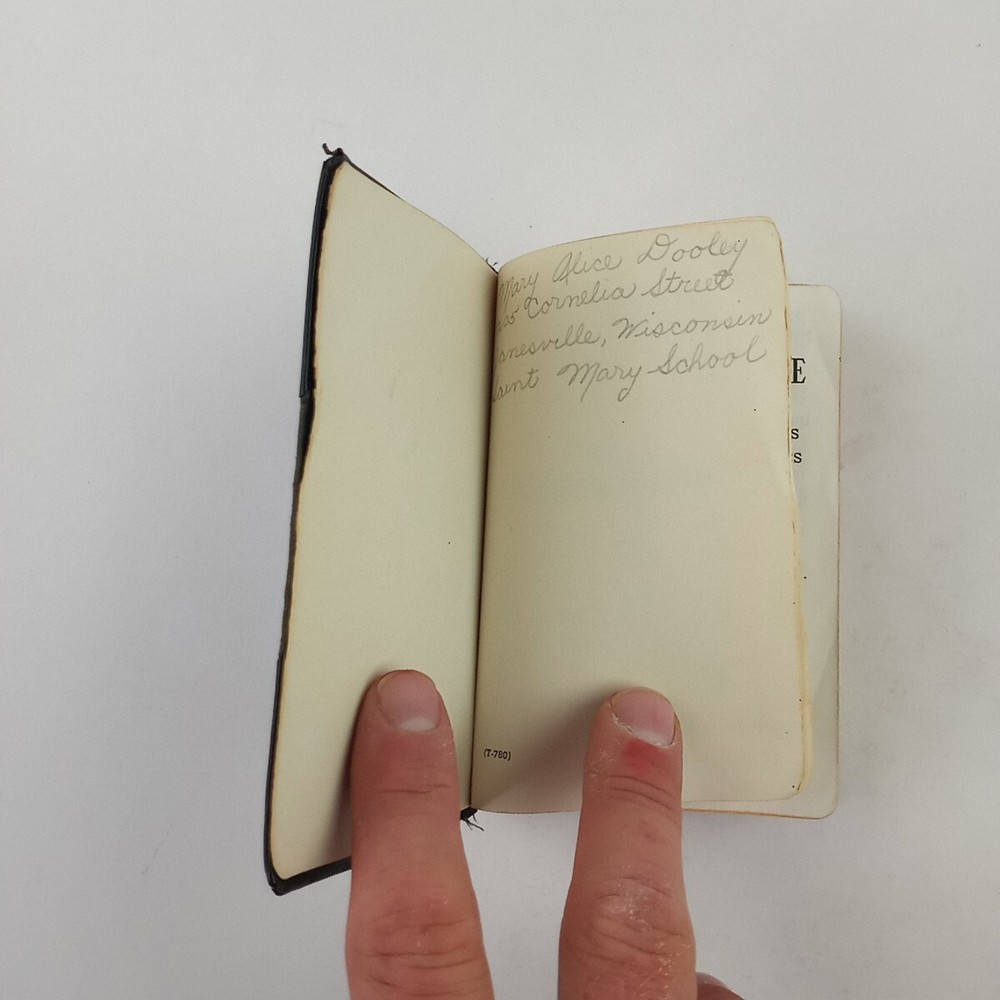 Mary Alice Dooley
Cornelia Street
anesville, Wisconsin
aint Mary School
(T-780)
E
s
s